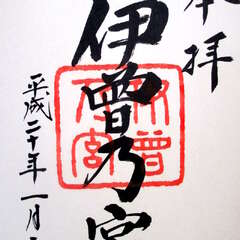 奉拝
伊曽乃宮
平成二十年一月
伊曽
乃宮